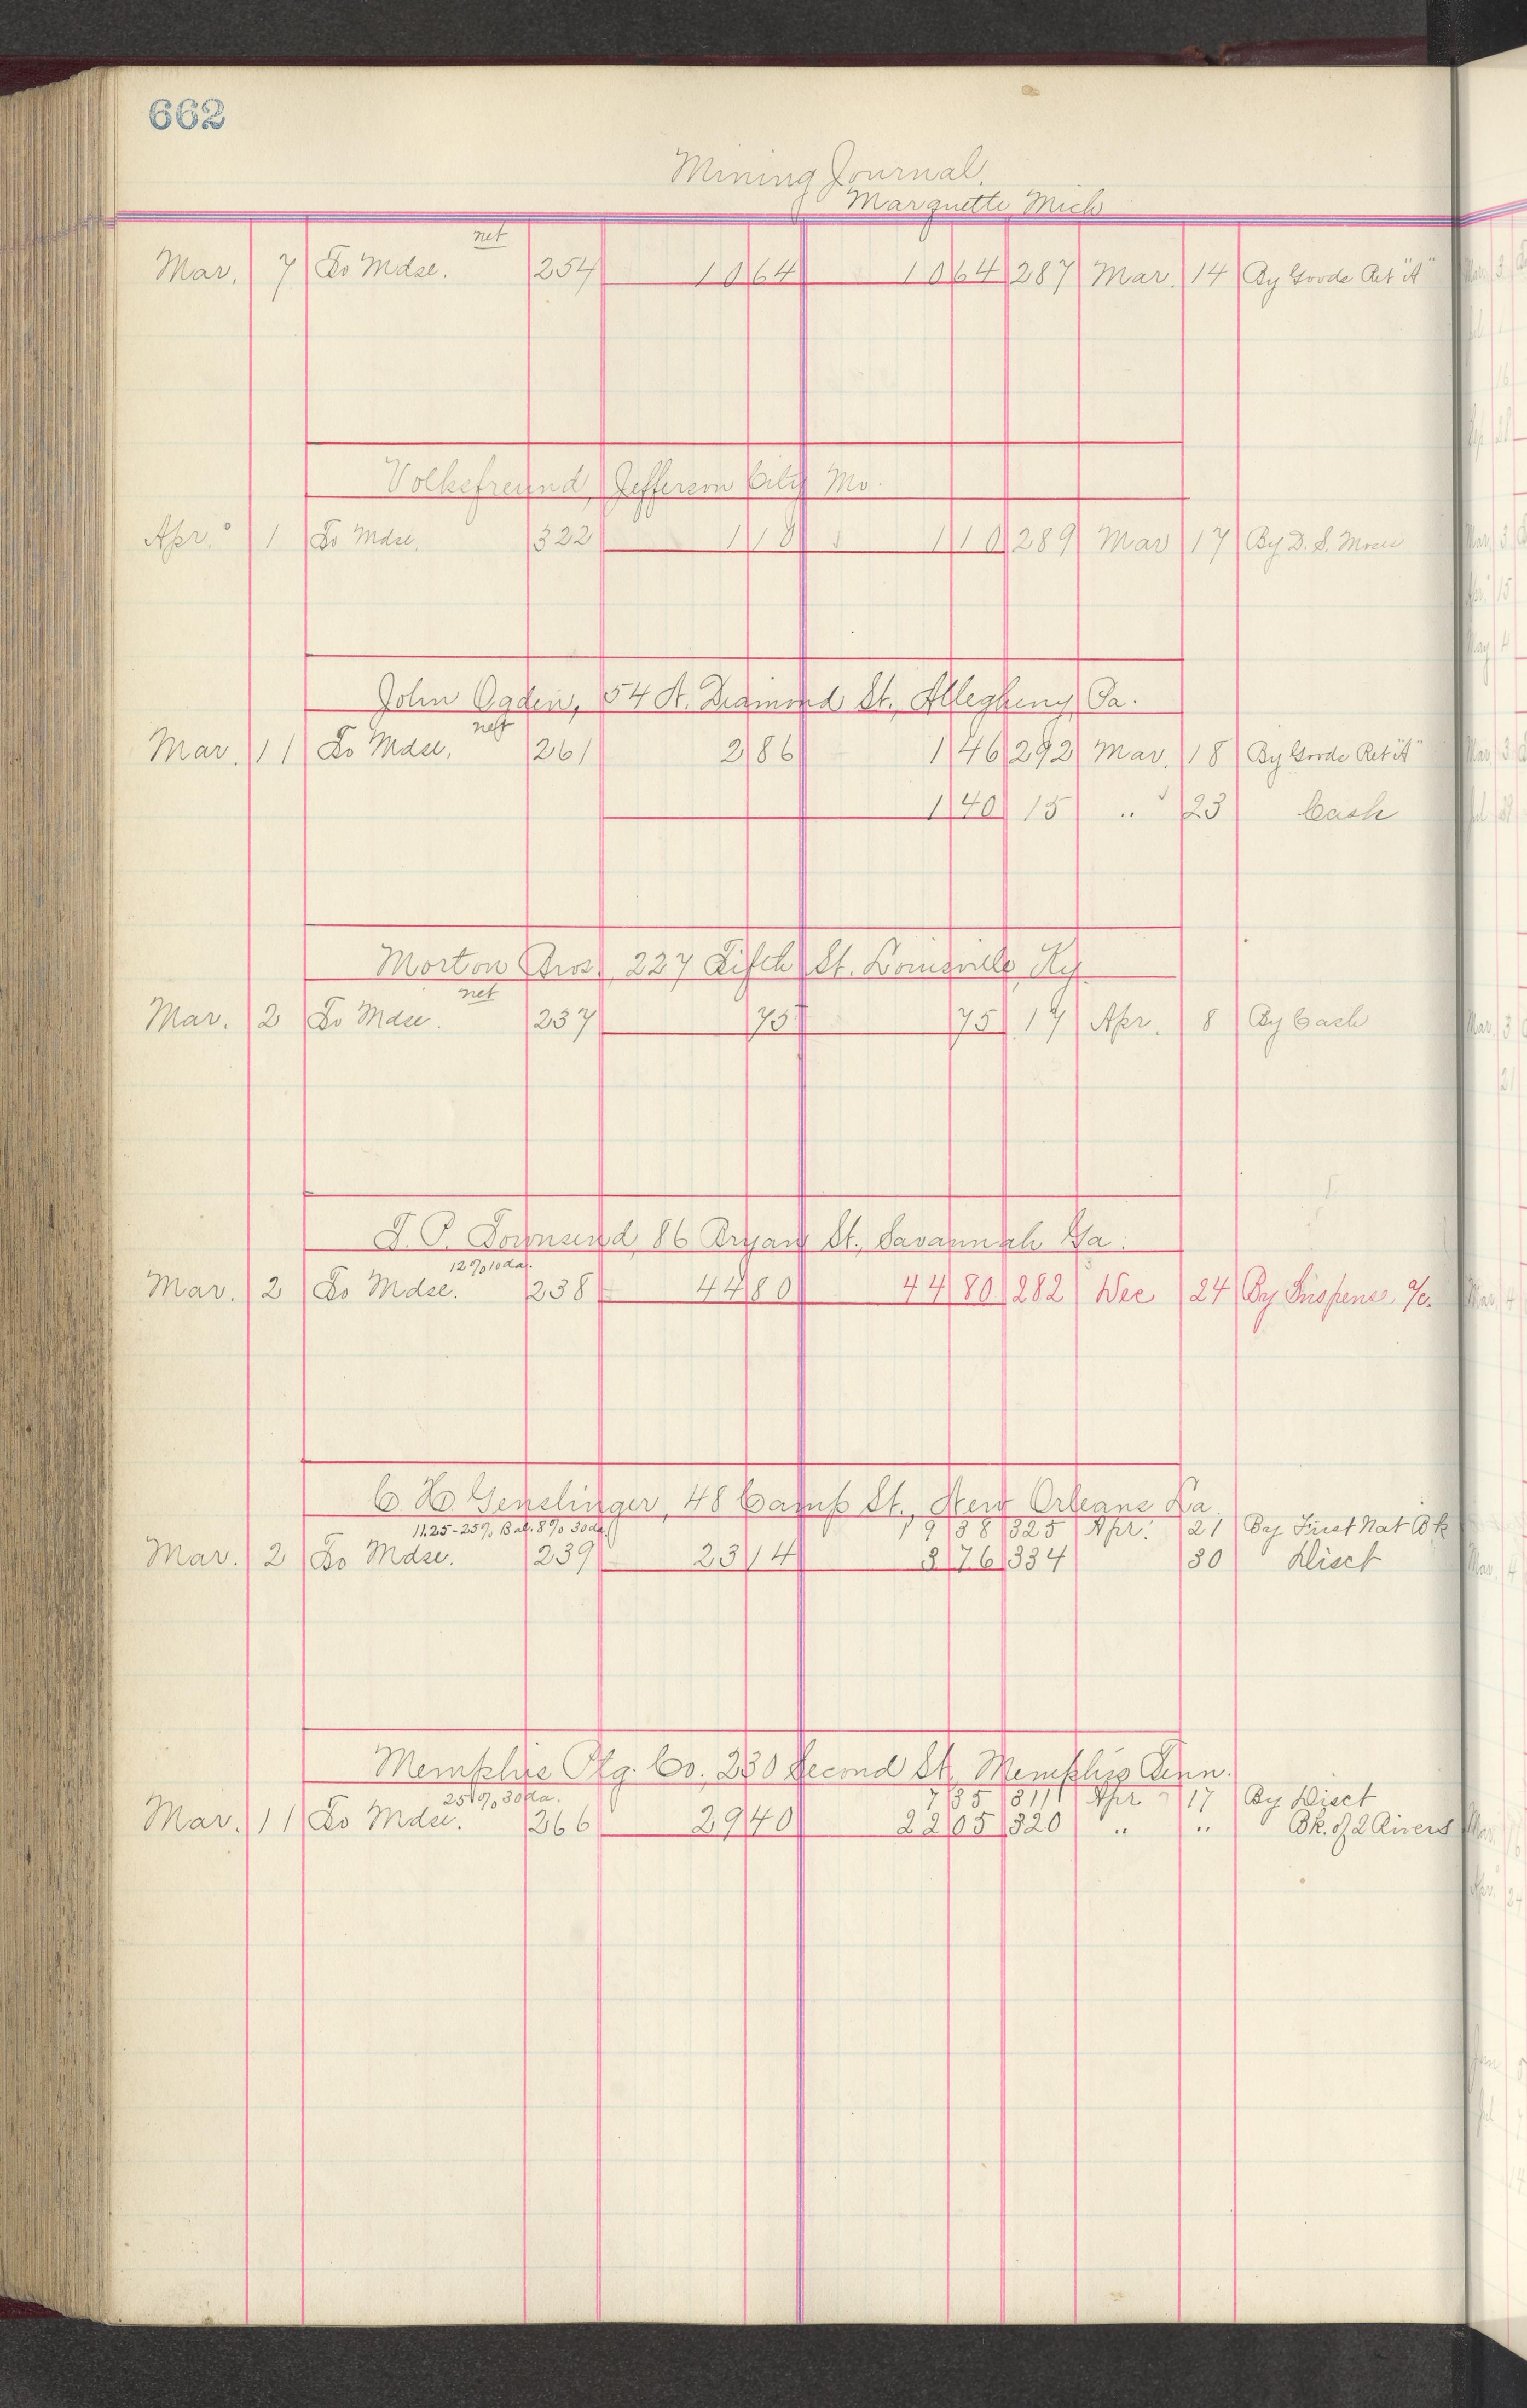 662
Mining Journal.
Marquette Mich
net
Mar. 7 To Mdse. 254 10 64 10 64 287 Mar. 14 By Goods Ret "A"
Volksfreund, Jefferson City Mo.
Apr. 1 To Mdse. 322 1 10 1 10 289 Mar 17 By D. S. Moses
John Ogden, 54 N. Diamond St., Allegheny, Pa.
net
Mar. 11 To Mdse. 261 2 86 1 46 292 Mar. 18 By Goods Ret "A"
1 40 15 " 23 Cash
Morton Bros. 227 Fifth St. Louisville, Ky.
net
Mar. 2 To Mdse. 237 75 75 17 Apr. 8 By Cash
T. P. Townsend, 86 Bryan St., Savannah Ga.
12% 10 da.
Mar. 2 To Mdse. 238 44 80 44 80 282 Dec 24 By Suspense a/c.
C. H. Genslinger, 48 Camp St., New Orleans La
11.25-25% Bal. 8% 30 da. 19 38 325 Apr. 21 By First Nat Bk
Mar. 2 To Mdse. 239 23 14 3 76 334 30 Disct
Memphis Ptg. Co., 230 Second St, Memphis Tenn.
25% 30 da. 7 35 311 Apr 17 By Disct
Mar. 11 To Mdse. 266 29 40 22 05 320 " " Bk. of 2 Rivers